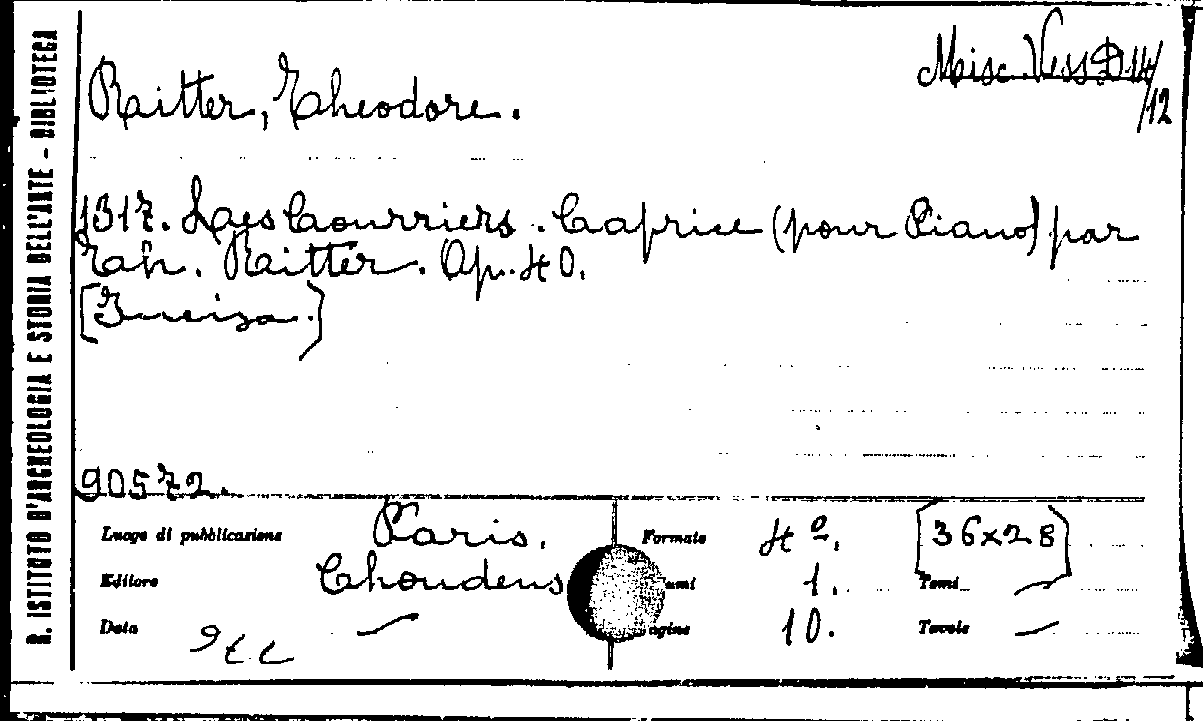 R. ISTITUTO D'ARCHEOLOGIA E STORIA DELL'ARTE - BIBLIOTECA
Misc. Vess D 14/
/12
Ritter, Theodore.
1317. Les Courriers. Caprice (pour Piano) par
Th. Ritter. Op. 40.
[Incisa.]
90572.
Luogo di pubblicazione Paris. Formato 4º. [36x28]
Editore Choudens 1. Tomi —
Data — 10. Tavole —